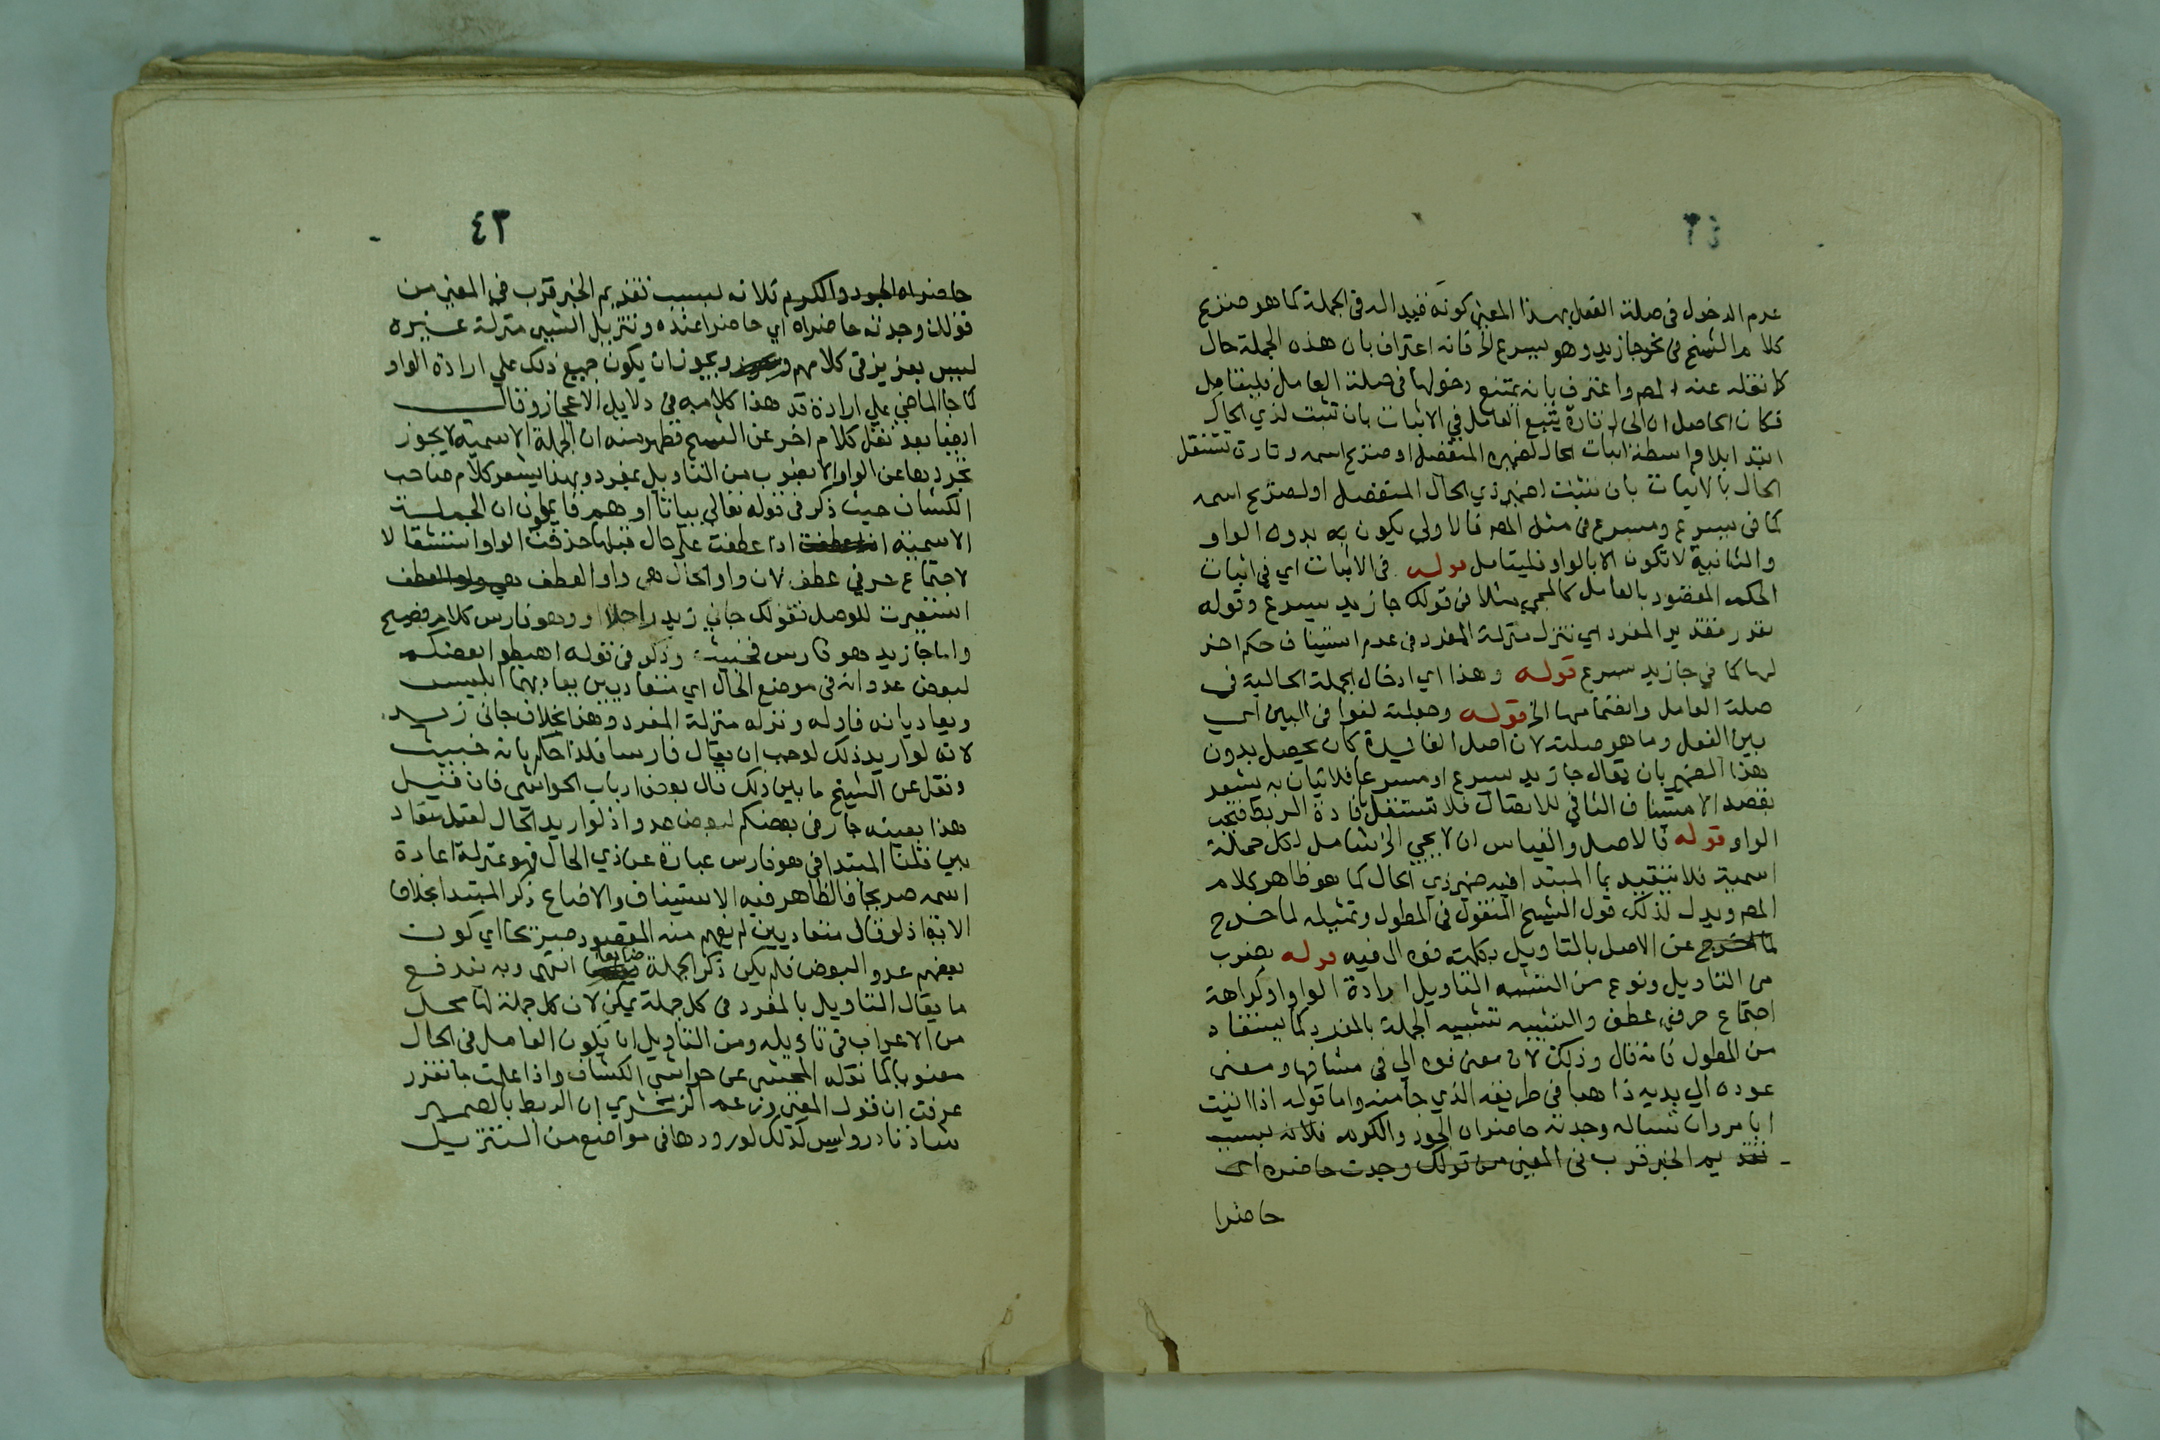 عدم الدخول في صلة الفعل بهذا المعنى كونه قيدا له في الجملة كما هو صريح
كلام الشيخ في نحو جا زيد وهو يسرع الخ فانه اعتراف بان هذه الجملة حال
كما نقله عنه المص واعترف بانه يمتنع دخولها في صلة العامل فليتامل
فكان الحاصل ان الحال تارة يتبع العامل في الاثبات بان تثبت لذي الحال
ابتدا بلا واسطة اثبات الحال لضميره المنفصل او صريح اسمه وتارة تستقل
الحال بالاثبات بان تثبت لضمير ذي الحال المنفصل او لصريح اسمه
كما في يسرع ومسرع في مثل المص فالاولى يكون به بدون الواو
والثانية لا تكون الا بالواو فليتامل قوله في الاثبات اي في اثبات
الحكم المقصود بالعامل كالمجي مثلا في قولك جا زيد يسرع وقوله
تقدر تقدير المفرد اي تتنزل منزلة المفرد في عدم استيناف حكم اخر
لها كما في جا زيد يسرع قوله وهذا اي ادخال الجملة الحالية في
صلة العامل وانضمامها الخ قوله وجعلته لغوا في البين اي
بين الفعل وما هو صلته لان اصل الفايدة كان يحصل بدون
هذا الضمير بان يقال جا زيد يسرع او مسرعا فالاتيان به يشعر
بقصد الاستيناف النافي للاتصال فلا تستقل فادة الربط فتجب
الواو قوله فالاصل والقياس ان لا يجي الخ شامل لكل جملة
اسمية فلا يتقيد بما المبتدا فيه ضمير ذي الحال كما هو ظاهر كلام
المص ويدل لذلك قول الشيخ المنقول في المطول وتمثيله لما خرج
لما خرج عن الاصل بالتاويل بكلمته فوه الى فيه قوله بضرب
من التاويل ونوع من التشبيه التاويل ارادة الواو او كراهة
اجتماع حرفي عطف والتشبيه تشبيه الجملة بالمفرد كما يستفاد
من المطول فانه قال وذلك لان معنى فوه الي في مشافها ومعنى
عوده الي بديه ذاهبا في طريقه الذي جا منه واما قوله اذا اتيت
ابا مروان تساله وجدته حاضراه الجود والكرم فلانه بسبب
تقديم الخبر قرب في المعنى من قولك وجدت حاضره اي
حاضرا
٤٣
حاضراه الجود والكرم فلانه بسبب تقديم الخبر قرب في المعني من
قولك وجدته حاضراه اي حاضرا عنده وتنزيل الشيى منزلة غيره
ليس بعزيز في كلامهم ويجوز ان يكون جميع ذلك علي ارادة الواو
كما جا الماضي علي ارادة قد هذا كلامه في دلايل الاعجاز وقال
ايضا بعد نقل كلام اخر عن الشيخ فظهر منه ان الجملة الاسمية لا يجوز
تجردها عن الواو الا بضرب من التاويل بمفرد وبهذا يشعر كلام صاحب
الكشاف حيث ذكر في قوله تعالي بياتا او هم قايلون ان الجملة
الاسمية اذا عطفت علي حال قبلها حذفت الواو استثقالا
لاجتماع حرفي عطف لان واو الحال هي واو العطف
استعيرت للوصل فقولك جاني زيد راجلا او وهو فارس كلام فصيح
واما جا زيد هو فارس فخبيث وذكر في قوله اهبطوا بعضكم
لبعض عدو انه في موضع الحال اي متعاديين يعاديهما ابليس
ويعاديانه فاوله ونزله منزلة المفرد وهذا بخلاف جاني زيد
لانه لو اريد ذلك لوجب ان يقال فارسا فلذا حكم بانه خبيث
ونقل عن الشيخ ما بين ذلك قال بعض ارباب الحواشي فان قيل
هذا بعينه جار في بعضكم لبعض عدو اذ لو اريد الحال لقيل متعاد
بين قلنا المبتدا في هو فارس عبارة عن ذي الحال فهو بمنزلة اعادة
اسمه صريحا فالظاهر فيه الاستيناف والاضاع ذكر المبتدا بخلاف
الاية اذ لو قال متعاديين لم يفهم منه المقصود صريحا اي كون
بعضهم عدوا لبعض فلم يكن ذكر الجملة ضايعا انتهى وبه يندفع
ما يقال التاويل بالمفرد في كل جملة يمكن لان كل جملة لها محل
من الاعراب في تاويله ومن التاويل ان يكون العامل في الحال
معنويا كما نقله المحشي عن حواشي الكشاف واذا علمت ما تقرر
عرفت ان قول المغني وزعم الزمخشري ان الربط بالضمير
شاذ نادر وليس كذلك لورودها في مواضع من التنزيل